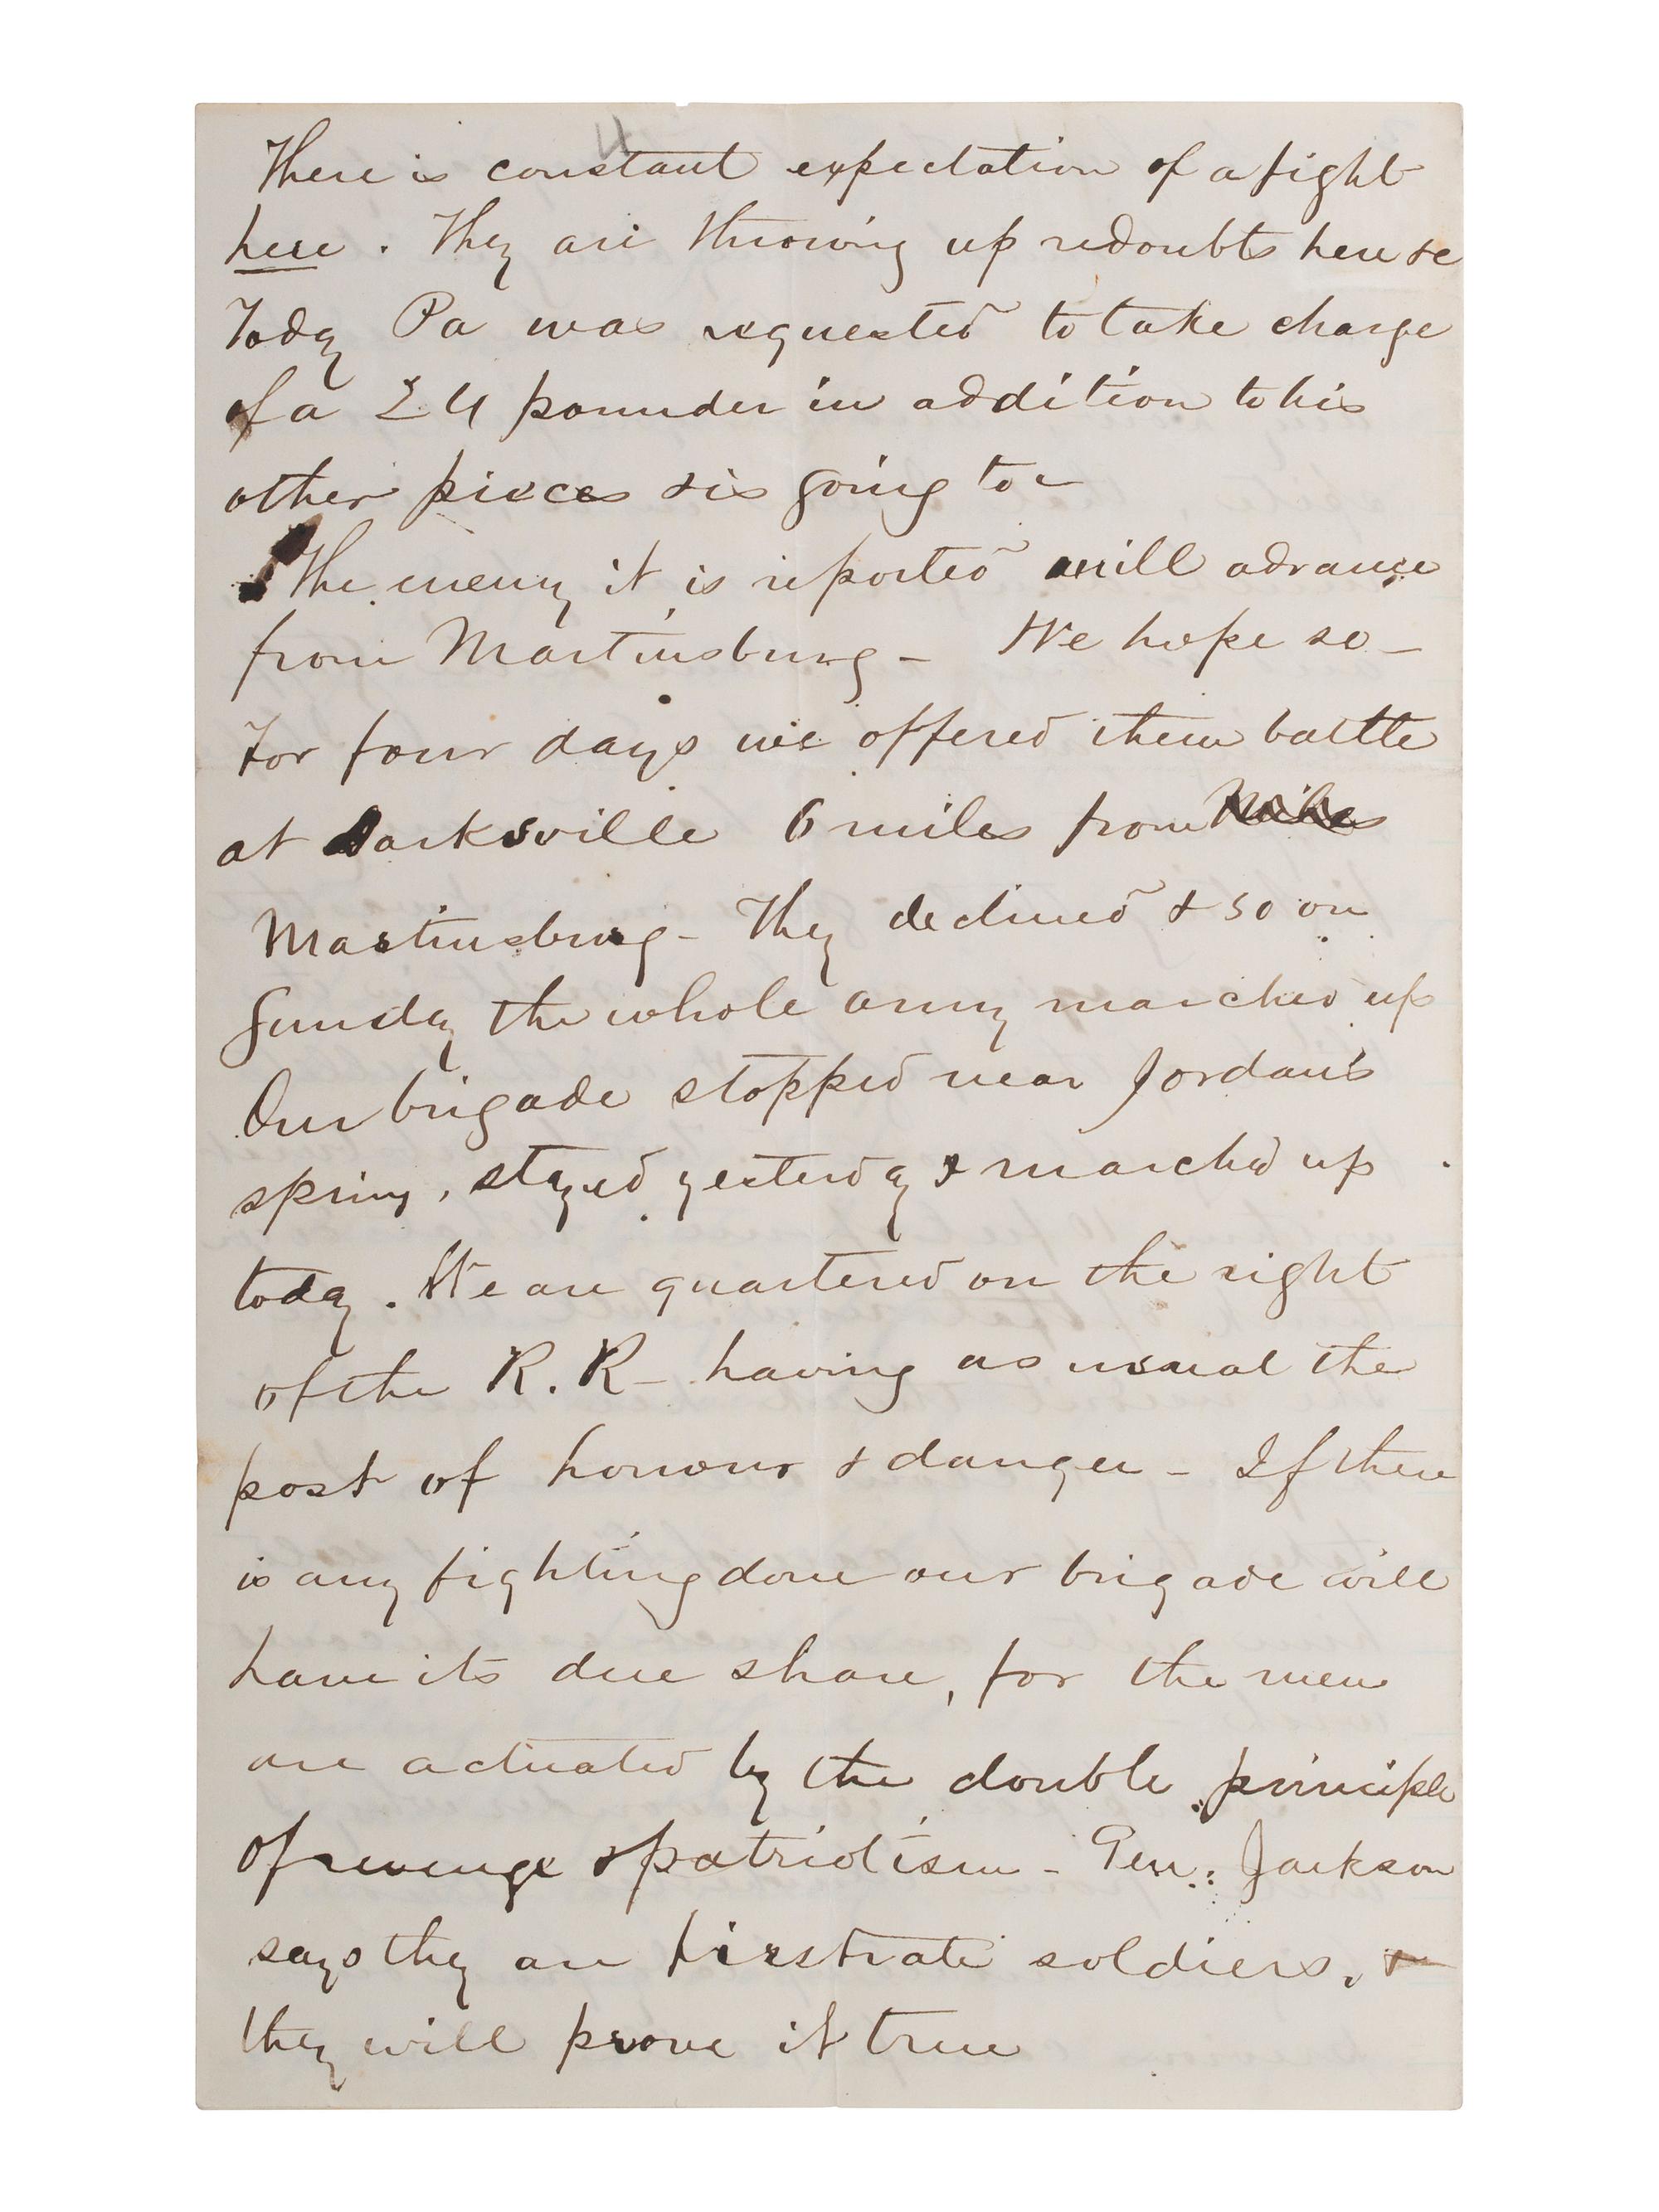 4
There is constant expectation of a fight
here. They are throwing up redoubts here &c
Today Pa was requested to take charge
of a 24 pounder in addition to his
other pieces & is going to –
The enemy it is reported will advance
from Martinsburg – We hope so –
For four days we offered them battle
at Darksville 6 miles from
Martinsburg – They declined & so on
Sunday the whole army marched up
Our brigade stopped near Jordan's
spring, stayed yesterday & marched up
today. We are quartered on the right
of the R.R – having as usual the
post of honour & danger – If there
is any fighting done our brigade will
have its due share, for the men
are actuated by the double principle
of revenge & patriotism – Gen: Jackson
says they are firstrate soldiers, &
they will prove it true